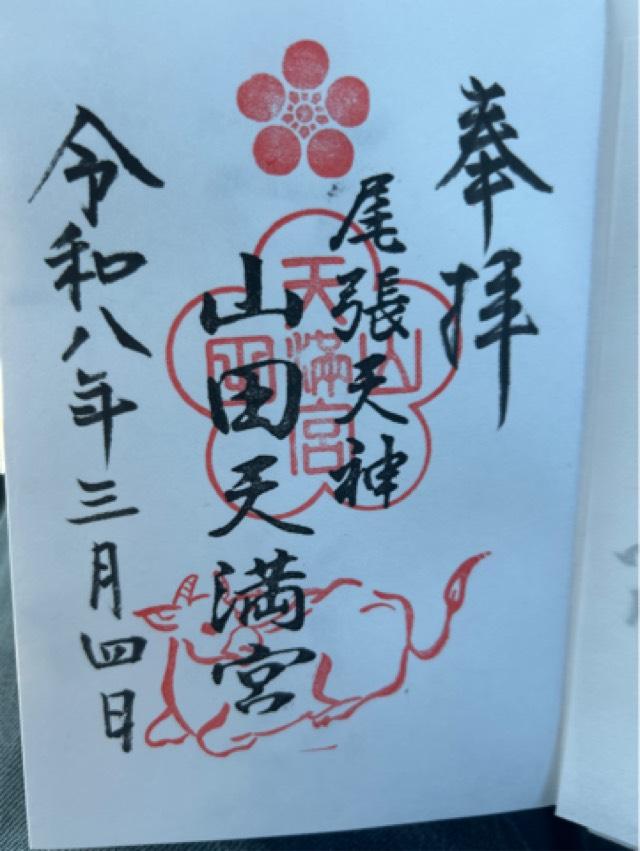 奉拝
尾張天神
山田天満宮
令和八年三月四日
山田
天満宮